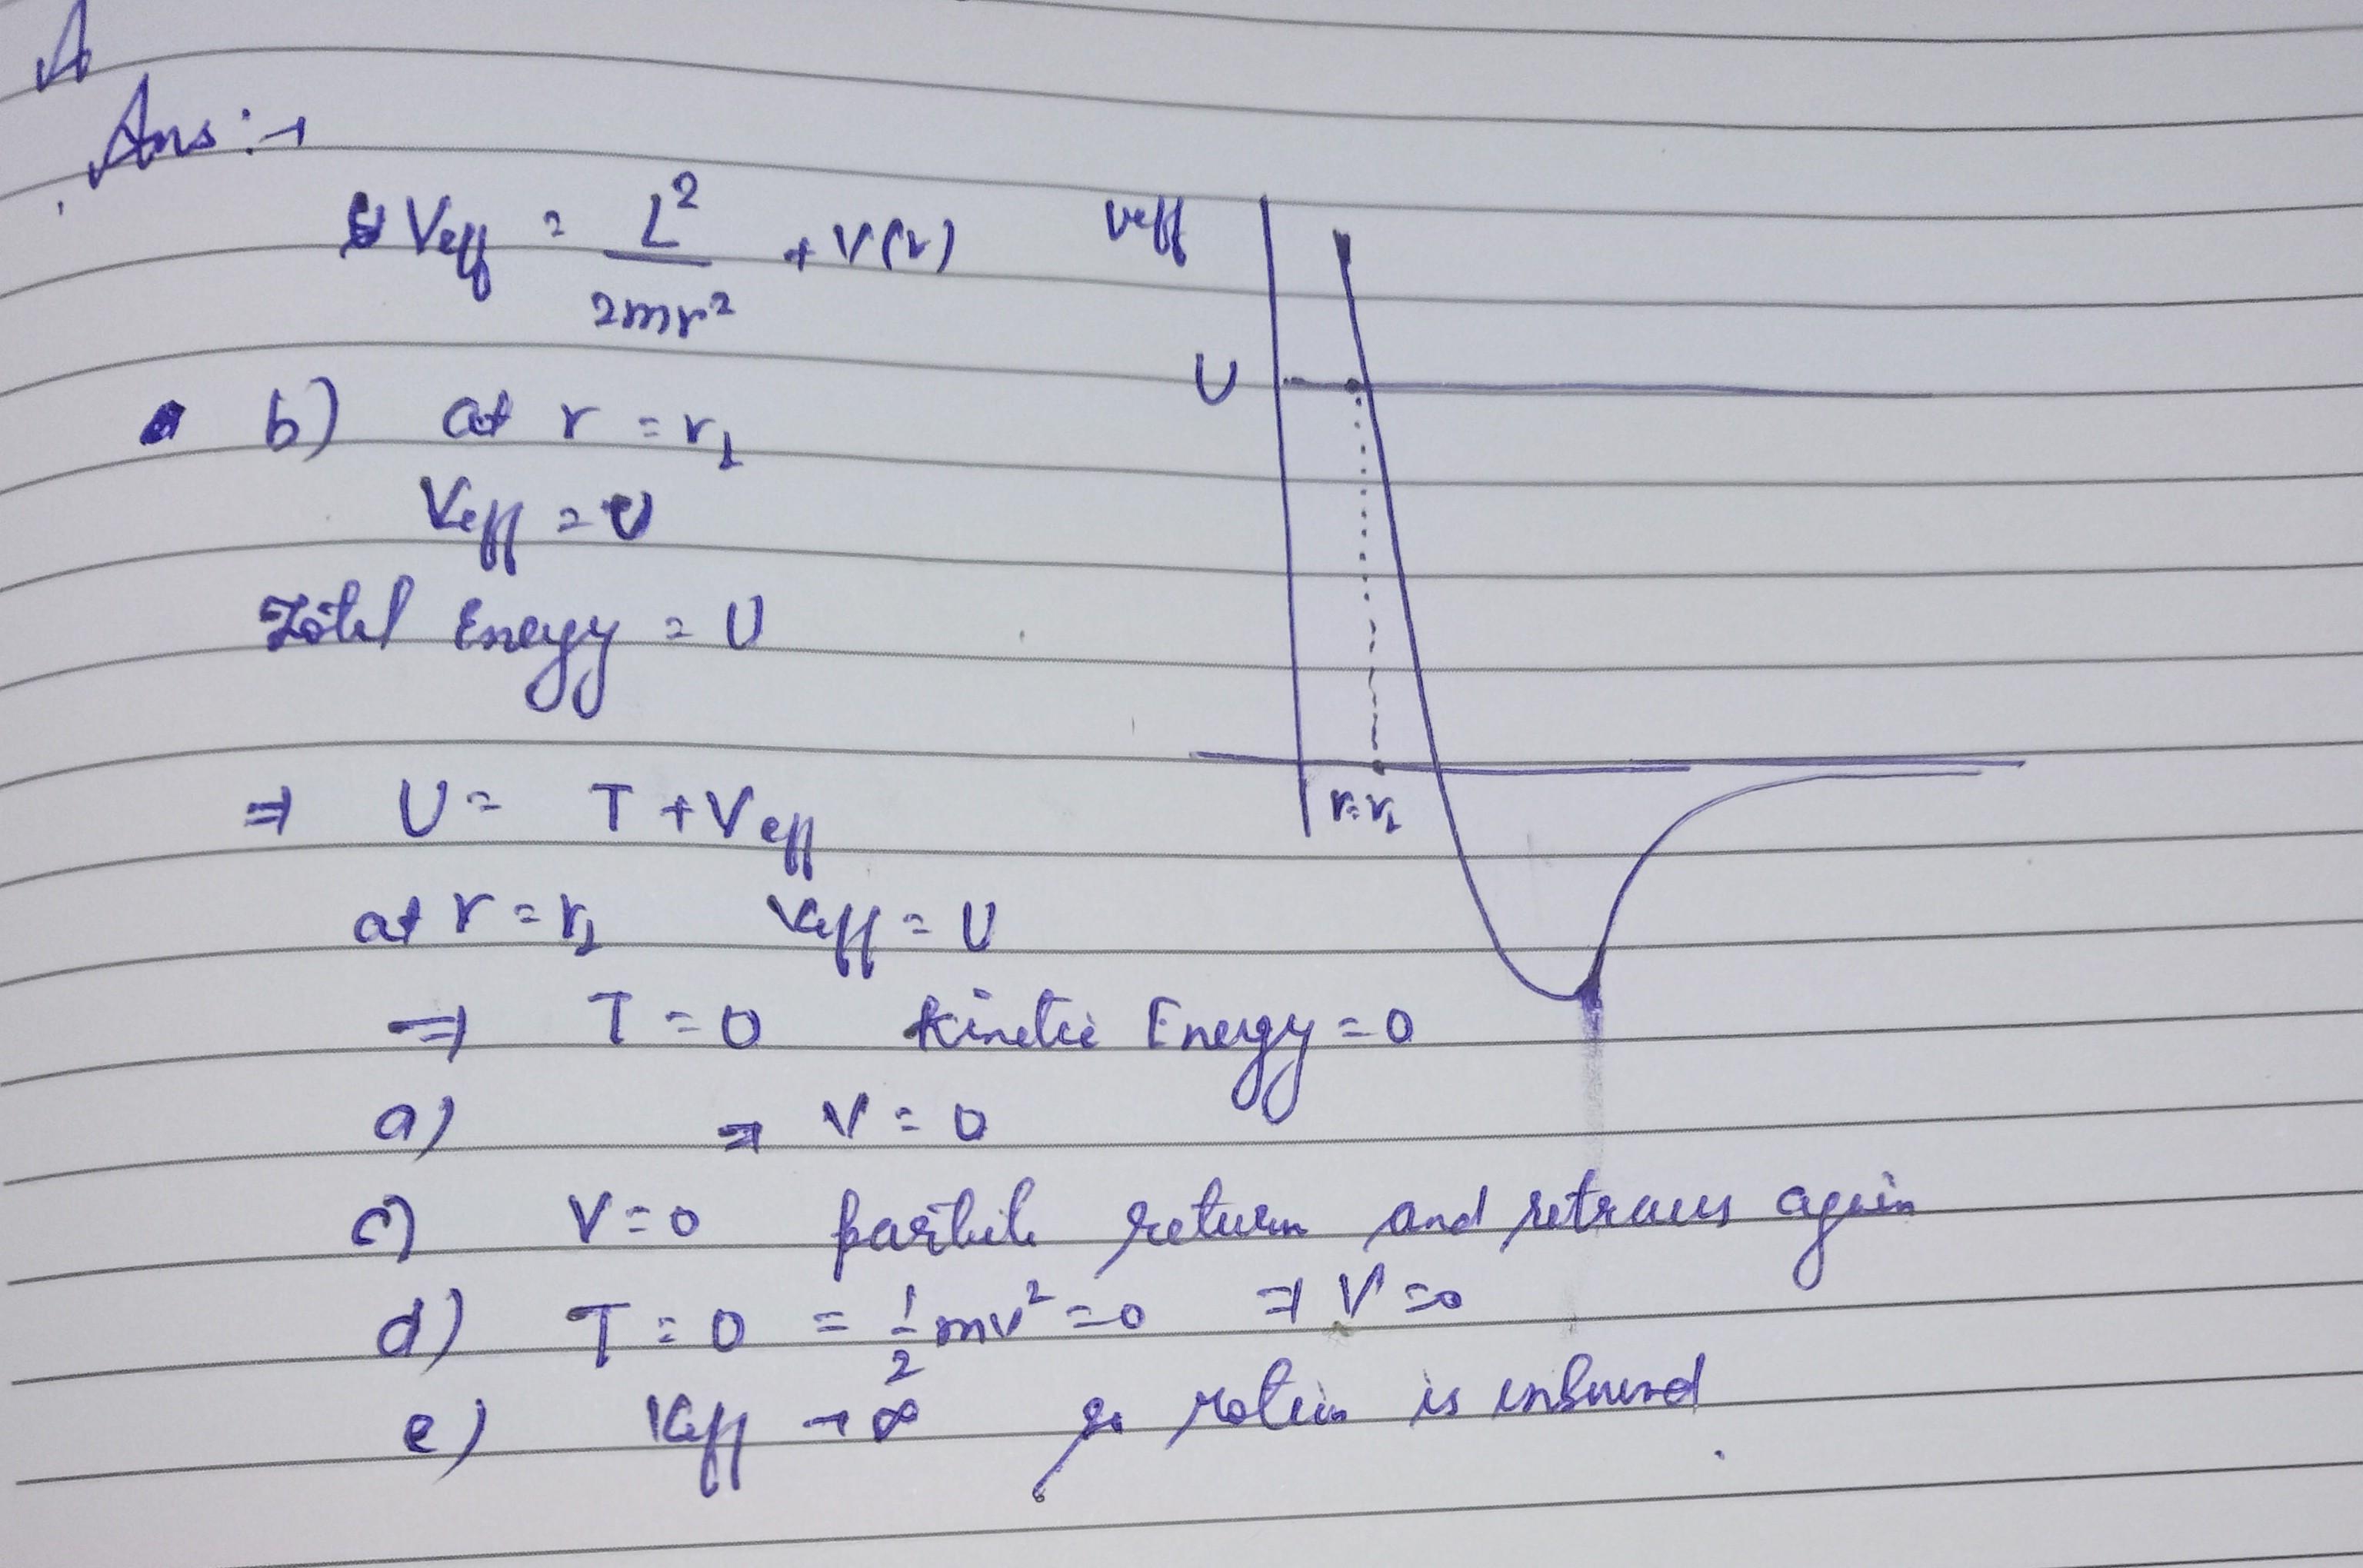 Ans :→
Veff = L² / 2mr² + V(r)
Veff
U
r=r₁
b) at r = r₁
Veff = U
Total Energy = U
⇒ U = T + Veff
at r = r₁ Veff = U
⇒ T = 0 Kinetic Energy = 0
a) ⇒ V = 0
c) V = 0 particle return and retraces again
d) T = 0 = 1/2 mv² = 0 ⇒ V = 0
e) Veff → ∞ is unbound